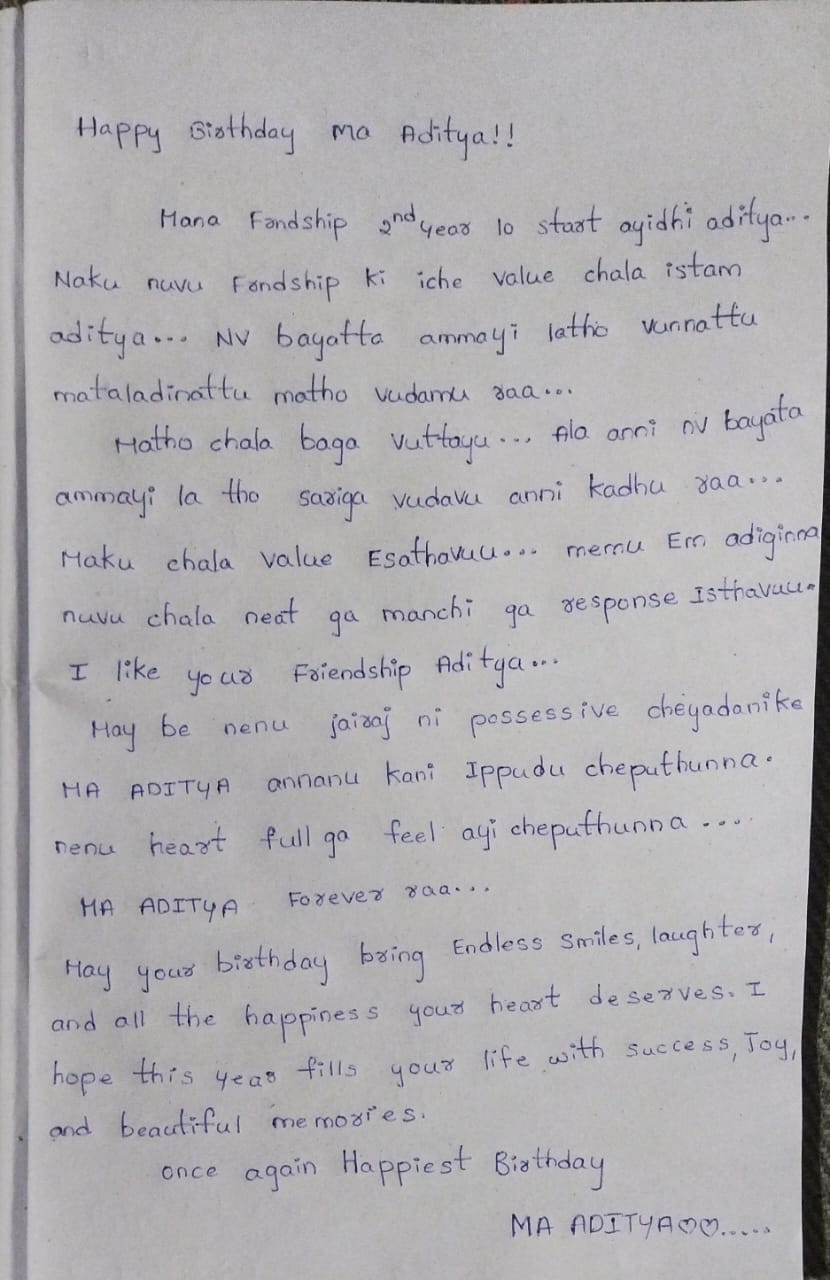 Happy Birthday ma Aditya!!
Mana Frndship 2nd year lo start ayidhi aditya...
Naku nuvu Frndship ki iche value chala istam
aditya... NV bayatta ammayi latho vunnattu
mataladinattu matho vudamu raa...
Matho chala baga vuttayu... Ala anni nv bayata
ammayi la tho sariga vudavu anni kadhu raa...
Maku chala value Esathavuu... memu Em adiginna
nuvu chala neat ga manchi ga response Isthavuu.
I like your Friendship Aditya...
May be nenu jairaj ni possessive cheyadanike
MA ADITYA annanu kani Ippudu cheputhunna.
nenu heart full ga feel ayi cheputhunna ....
MA ADITYA Forever raa...
May your birthday bring Endless smiles, laughter,
and all the happiness your heart deserves. I
hope this year fills your life with success, Joy,
and beautiful memories.
once again Happiest Birthday
MA ADITYA♡♡.....